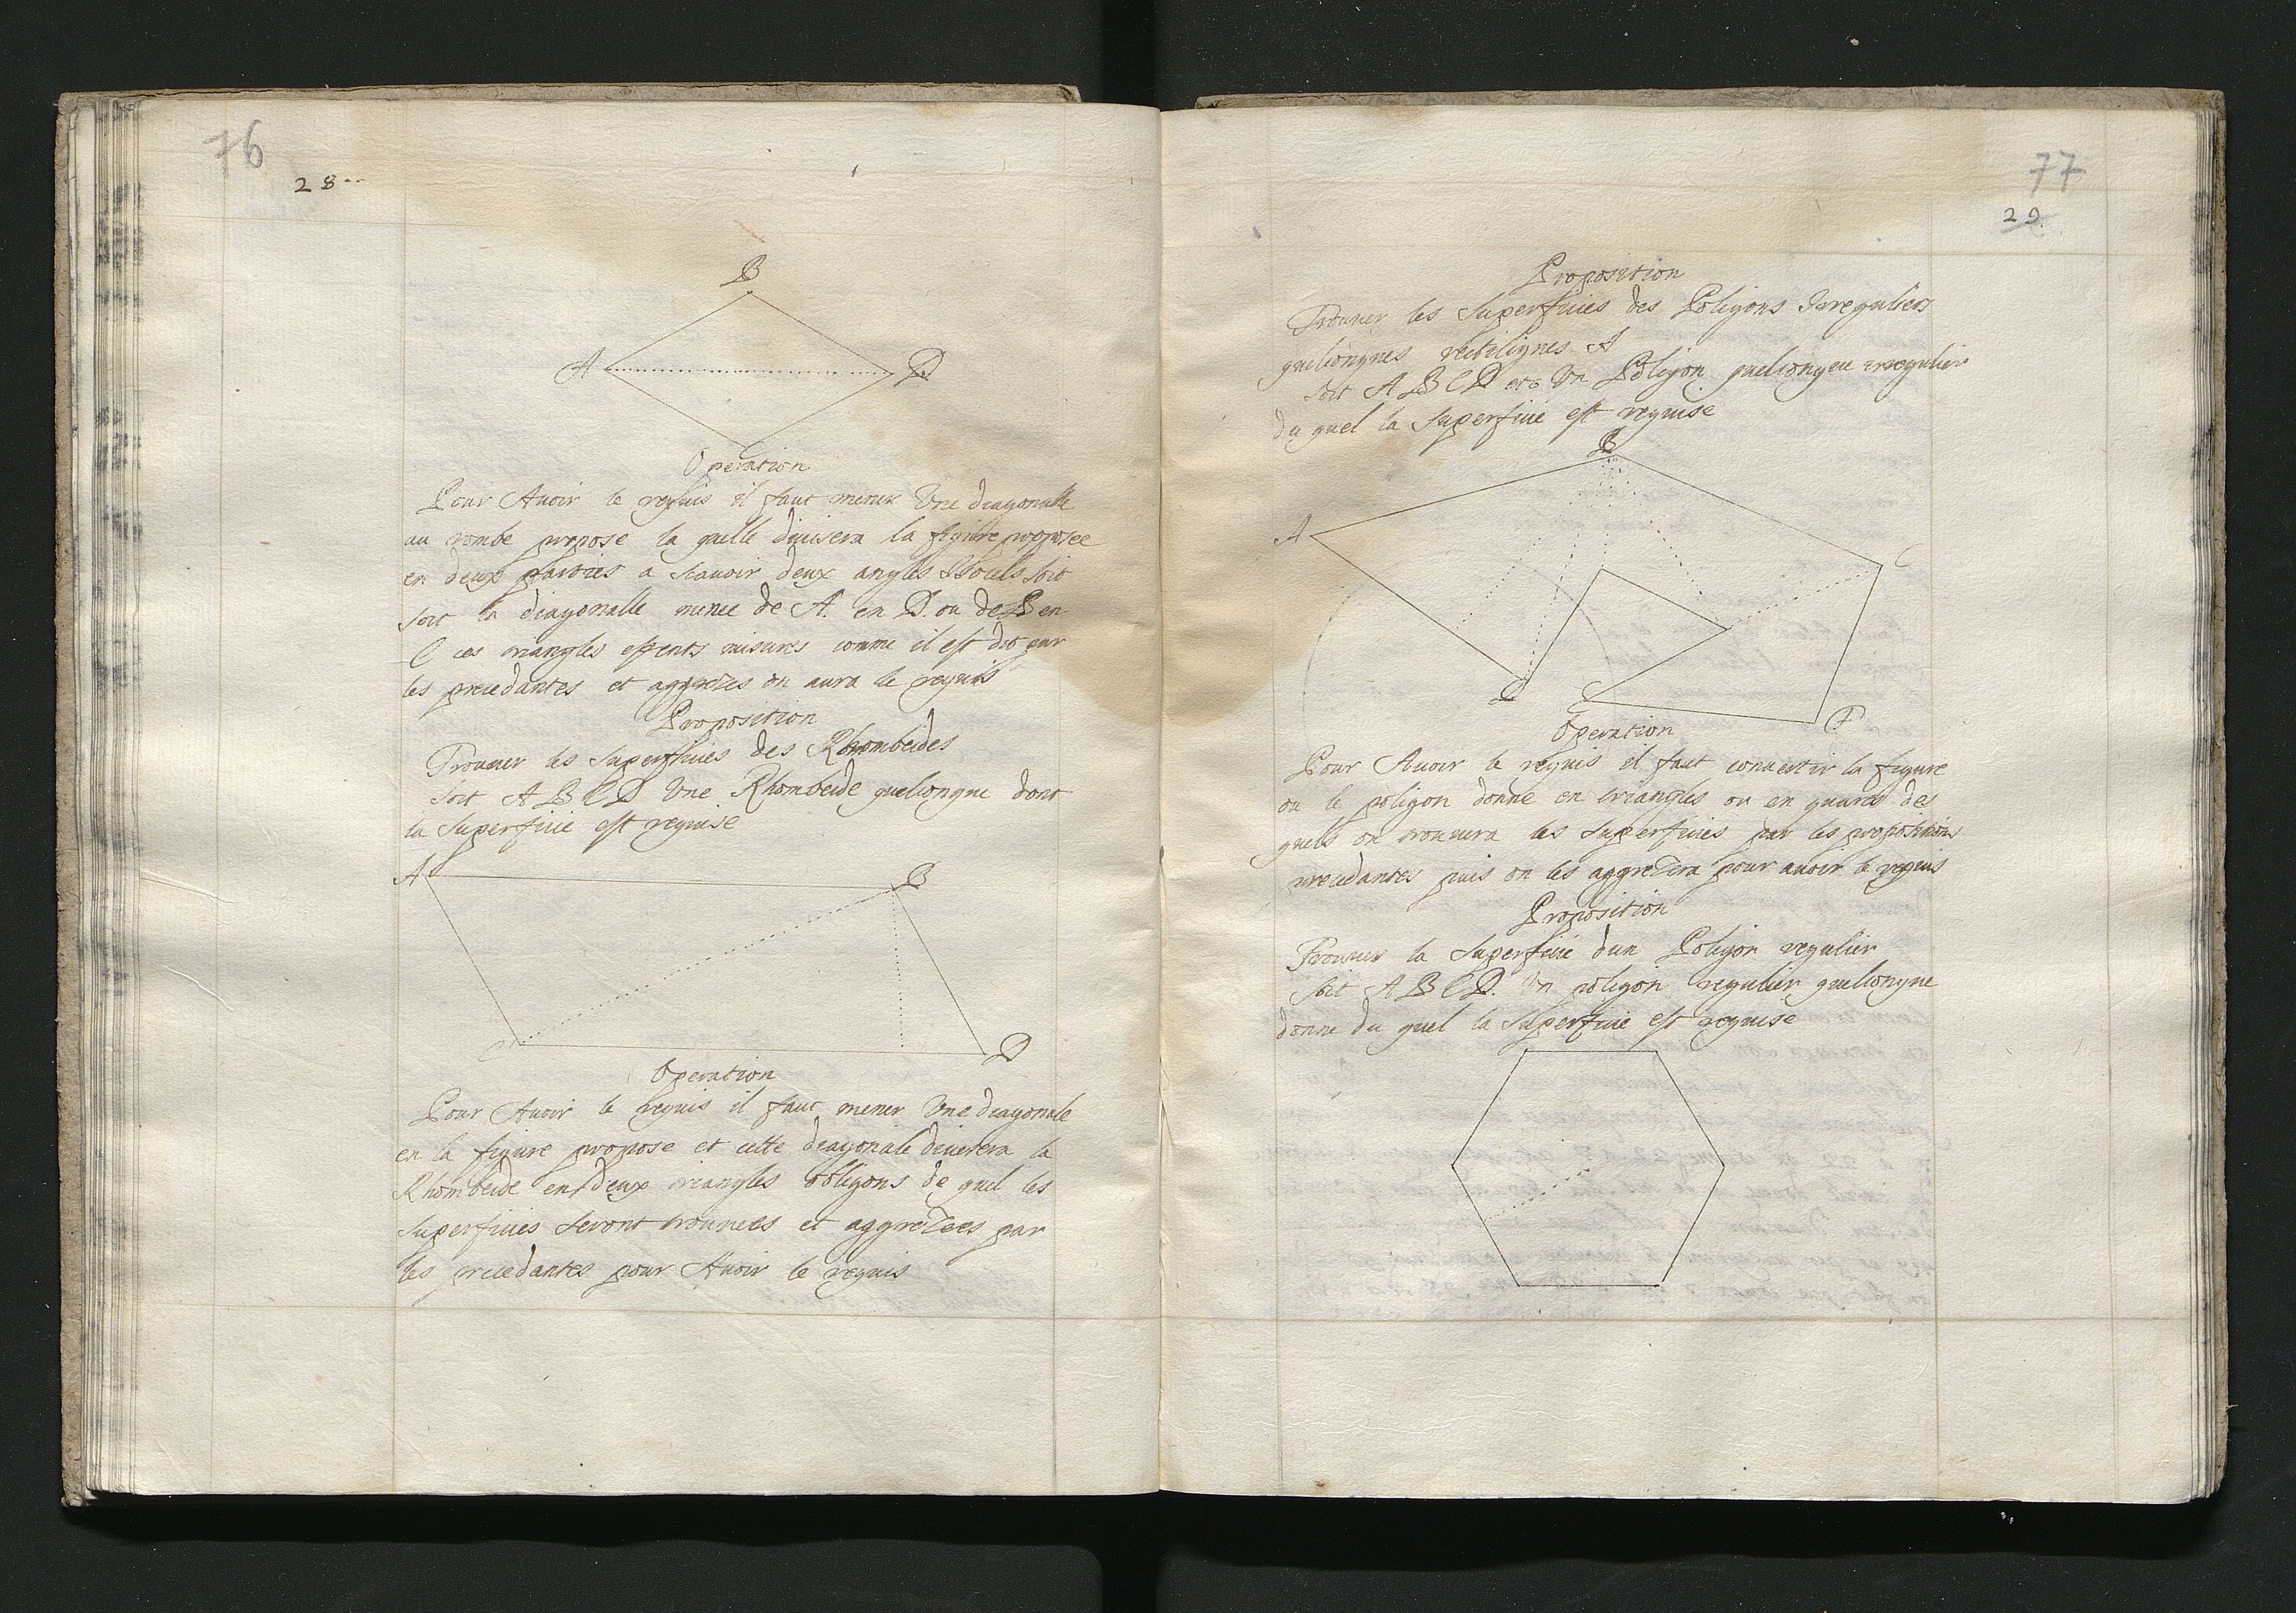 76
28
B
A D
Operation
Pour Auoir le requis il faut mener Vne diagonalle
au rombe propose la quelle diuisera la figure proposee
en deux parties a scauoir deux angles Isocels soit
soit la diagonalle menee de A. en D. ou de B en
C ces triangles estents mesures comme il est dit par
les precedantes et aggregés on aura le requis
Proposition
Trouuer les Superficies des Rhombeides
soit A B C D Vne Rhombeide quelconque dont
la Superficie est requise
A B
C D
Operation
Pour Auoir le requis il faut mener Vne diagonale
en la figure propose et cette diagonale diuisera la
Rhombeide en deux triangles obligons de quel les
Superficies seront trouuees et aggregées par
les precedantes pour Auoir le requis
77
29.
Proposition
Trouuer les Superficies des Poligons Irreguliers
quelconques rectilignes A
soit A B C D etc Vn Poligon quelconque irregulier
du quel la Superficie est requise
B
A C
D
F
Operation
Pour Auoir le requis il faut conuertir la figure
ou le poligon donne en triangles ou en quarés des
quels on trouuera les Superficies par les propositions
precedantes puis on les aggregera pour auoir le requis
Proposition
Trouuer la Superficie dun Poligon regulier
soit A B C D. Vn poligon regulier quelconque
donne du quel la Superficie est requise